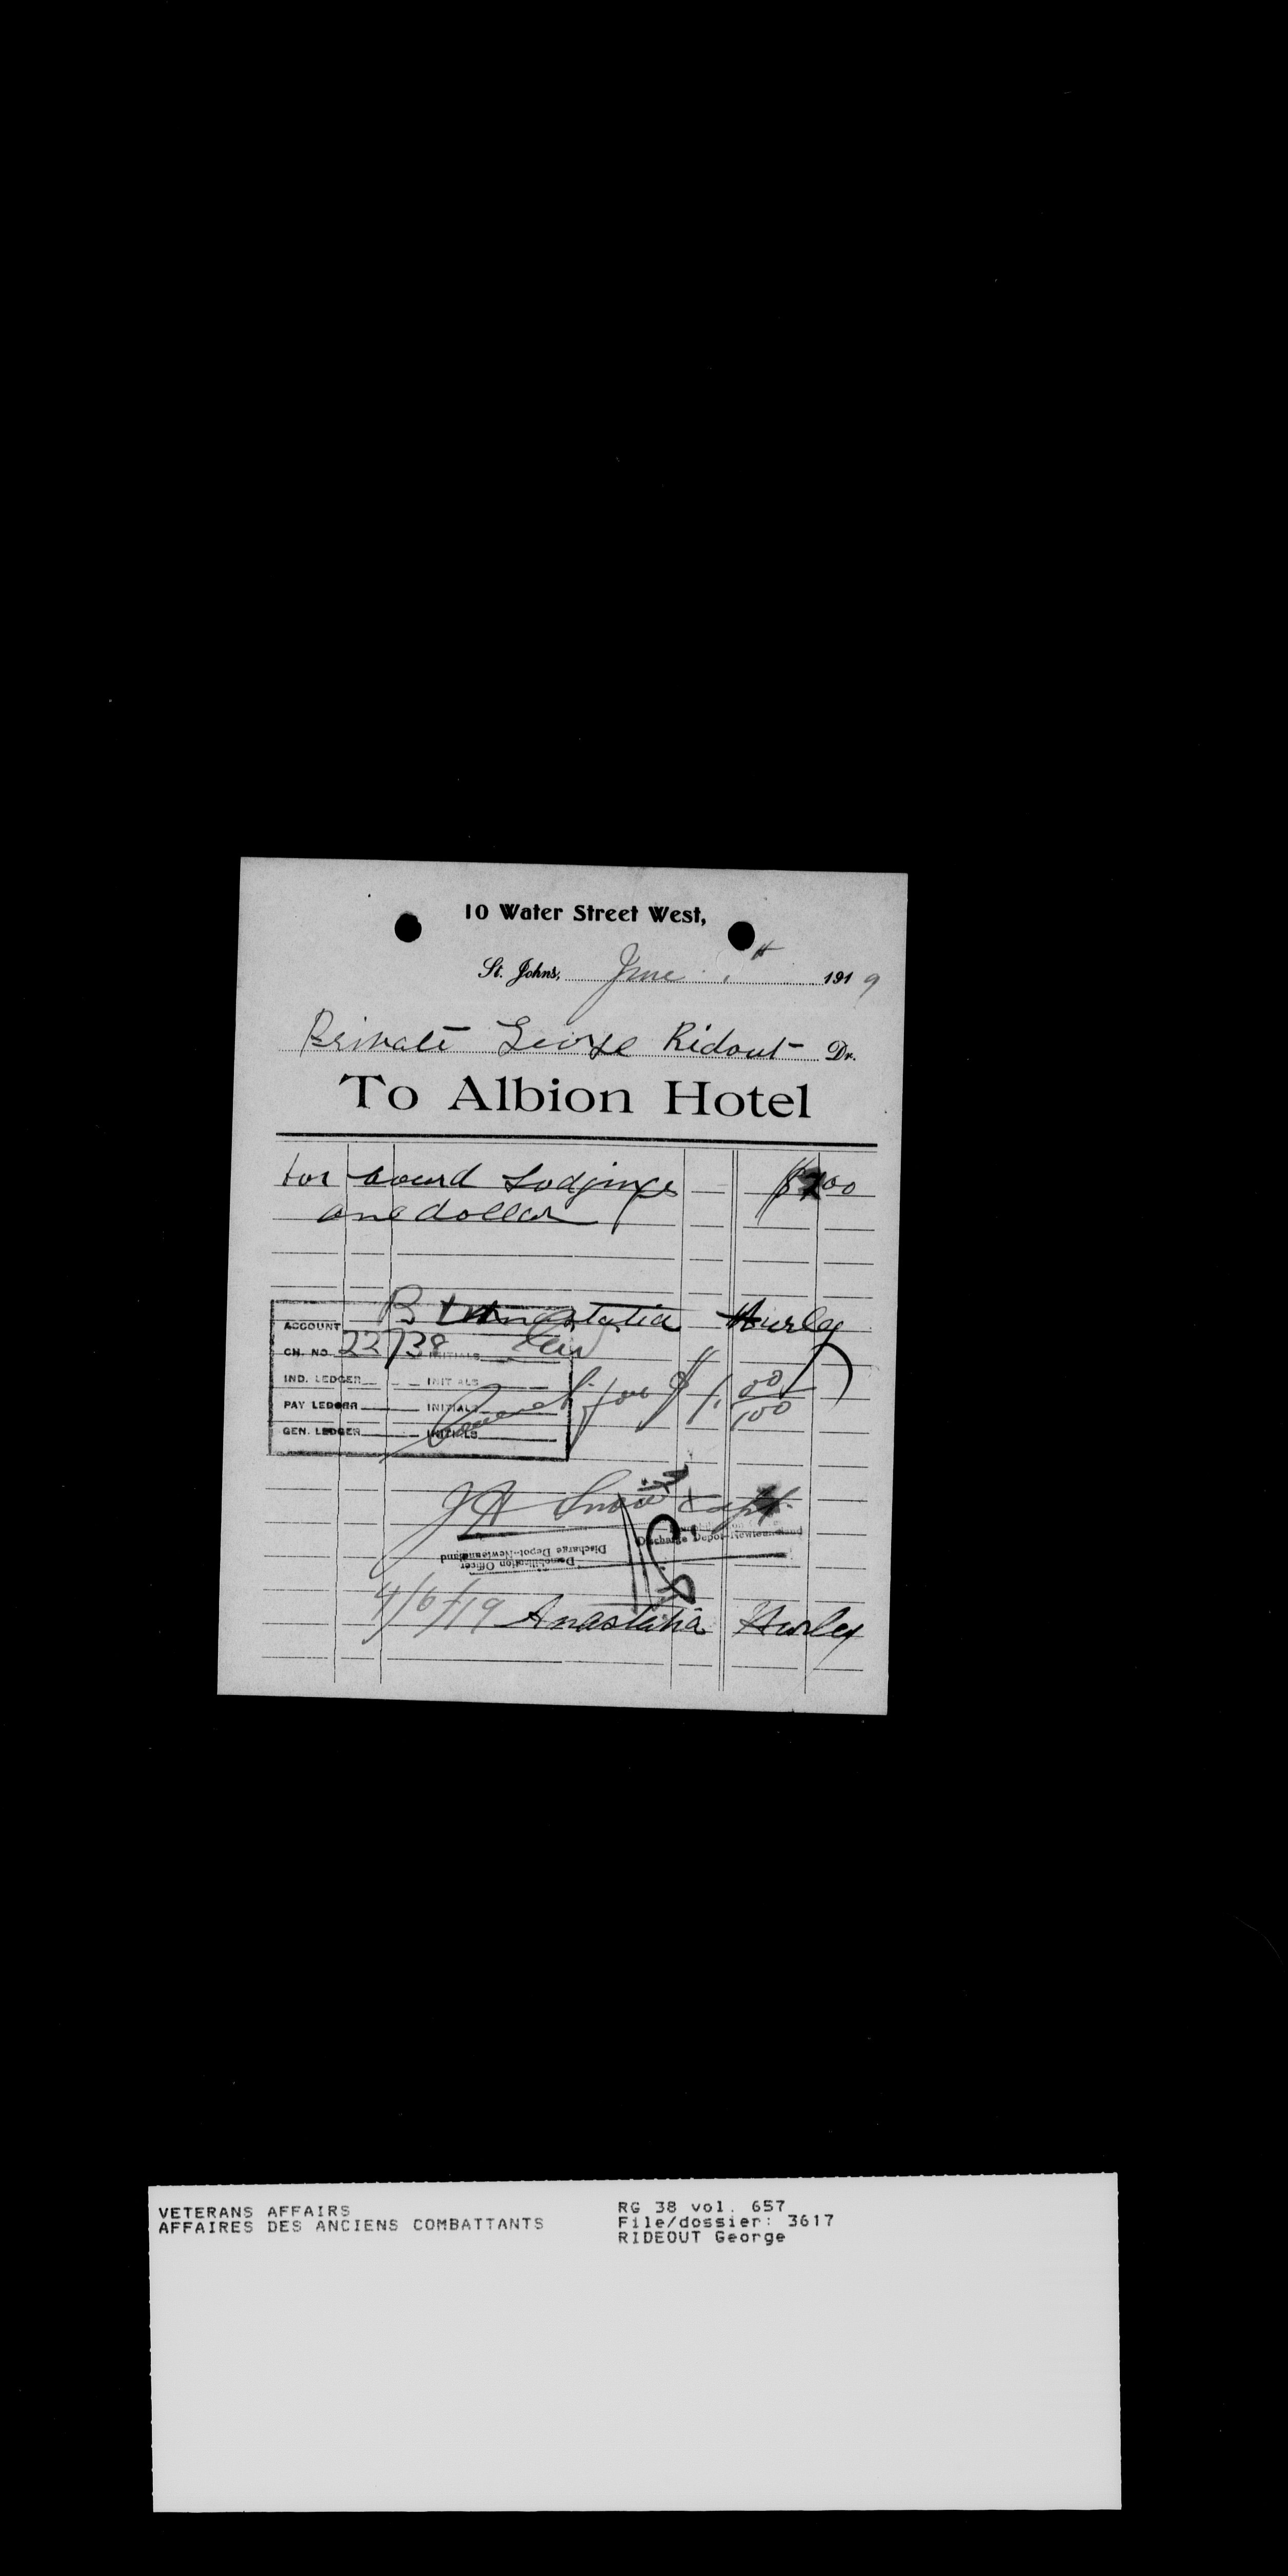 10 Water Street West,
St. Johns, June 1919
Private George Ridout Dr.
To Albion Hotel
for board Lodginge $1 00
one dollar
B Anastatia Hurley
ACCOUNT
CH. NO. 22738 INITIALS
IND. LEDGER INITIALS
PAY LEDGER INITIALS
GEN. LEDGER INITIALS
for $1.00/100
J A Snow Capt.
Discharge Depot-Newfoundland
Demobilization Officer
Discharge Depot-Newfoundland
4/6/19 Anastatia Hurley
VETERANS AFFAIRS
AFFAIRES DES ANCIENS COMBATTANTS
RG 38 vol. 657
File/dossier: 3617
RIDEOUT George